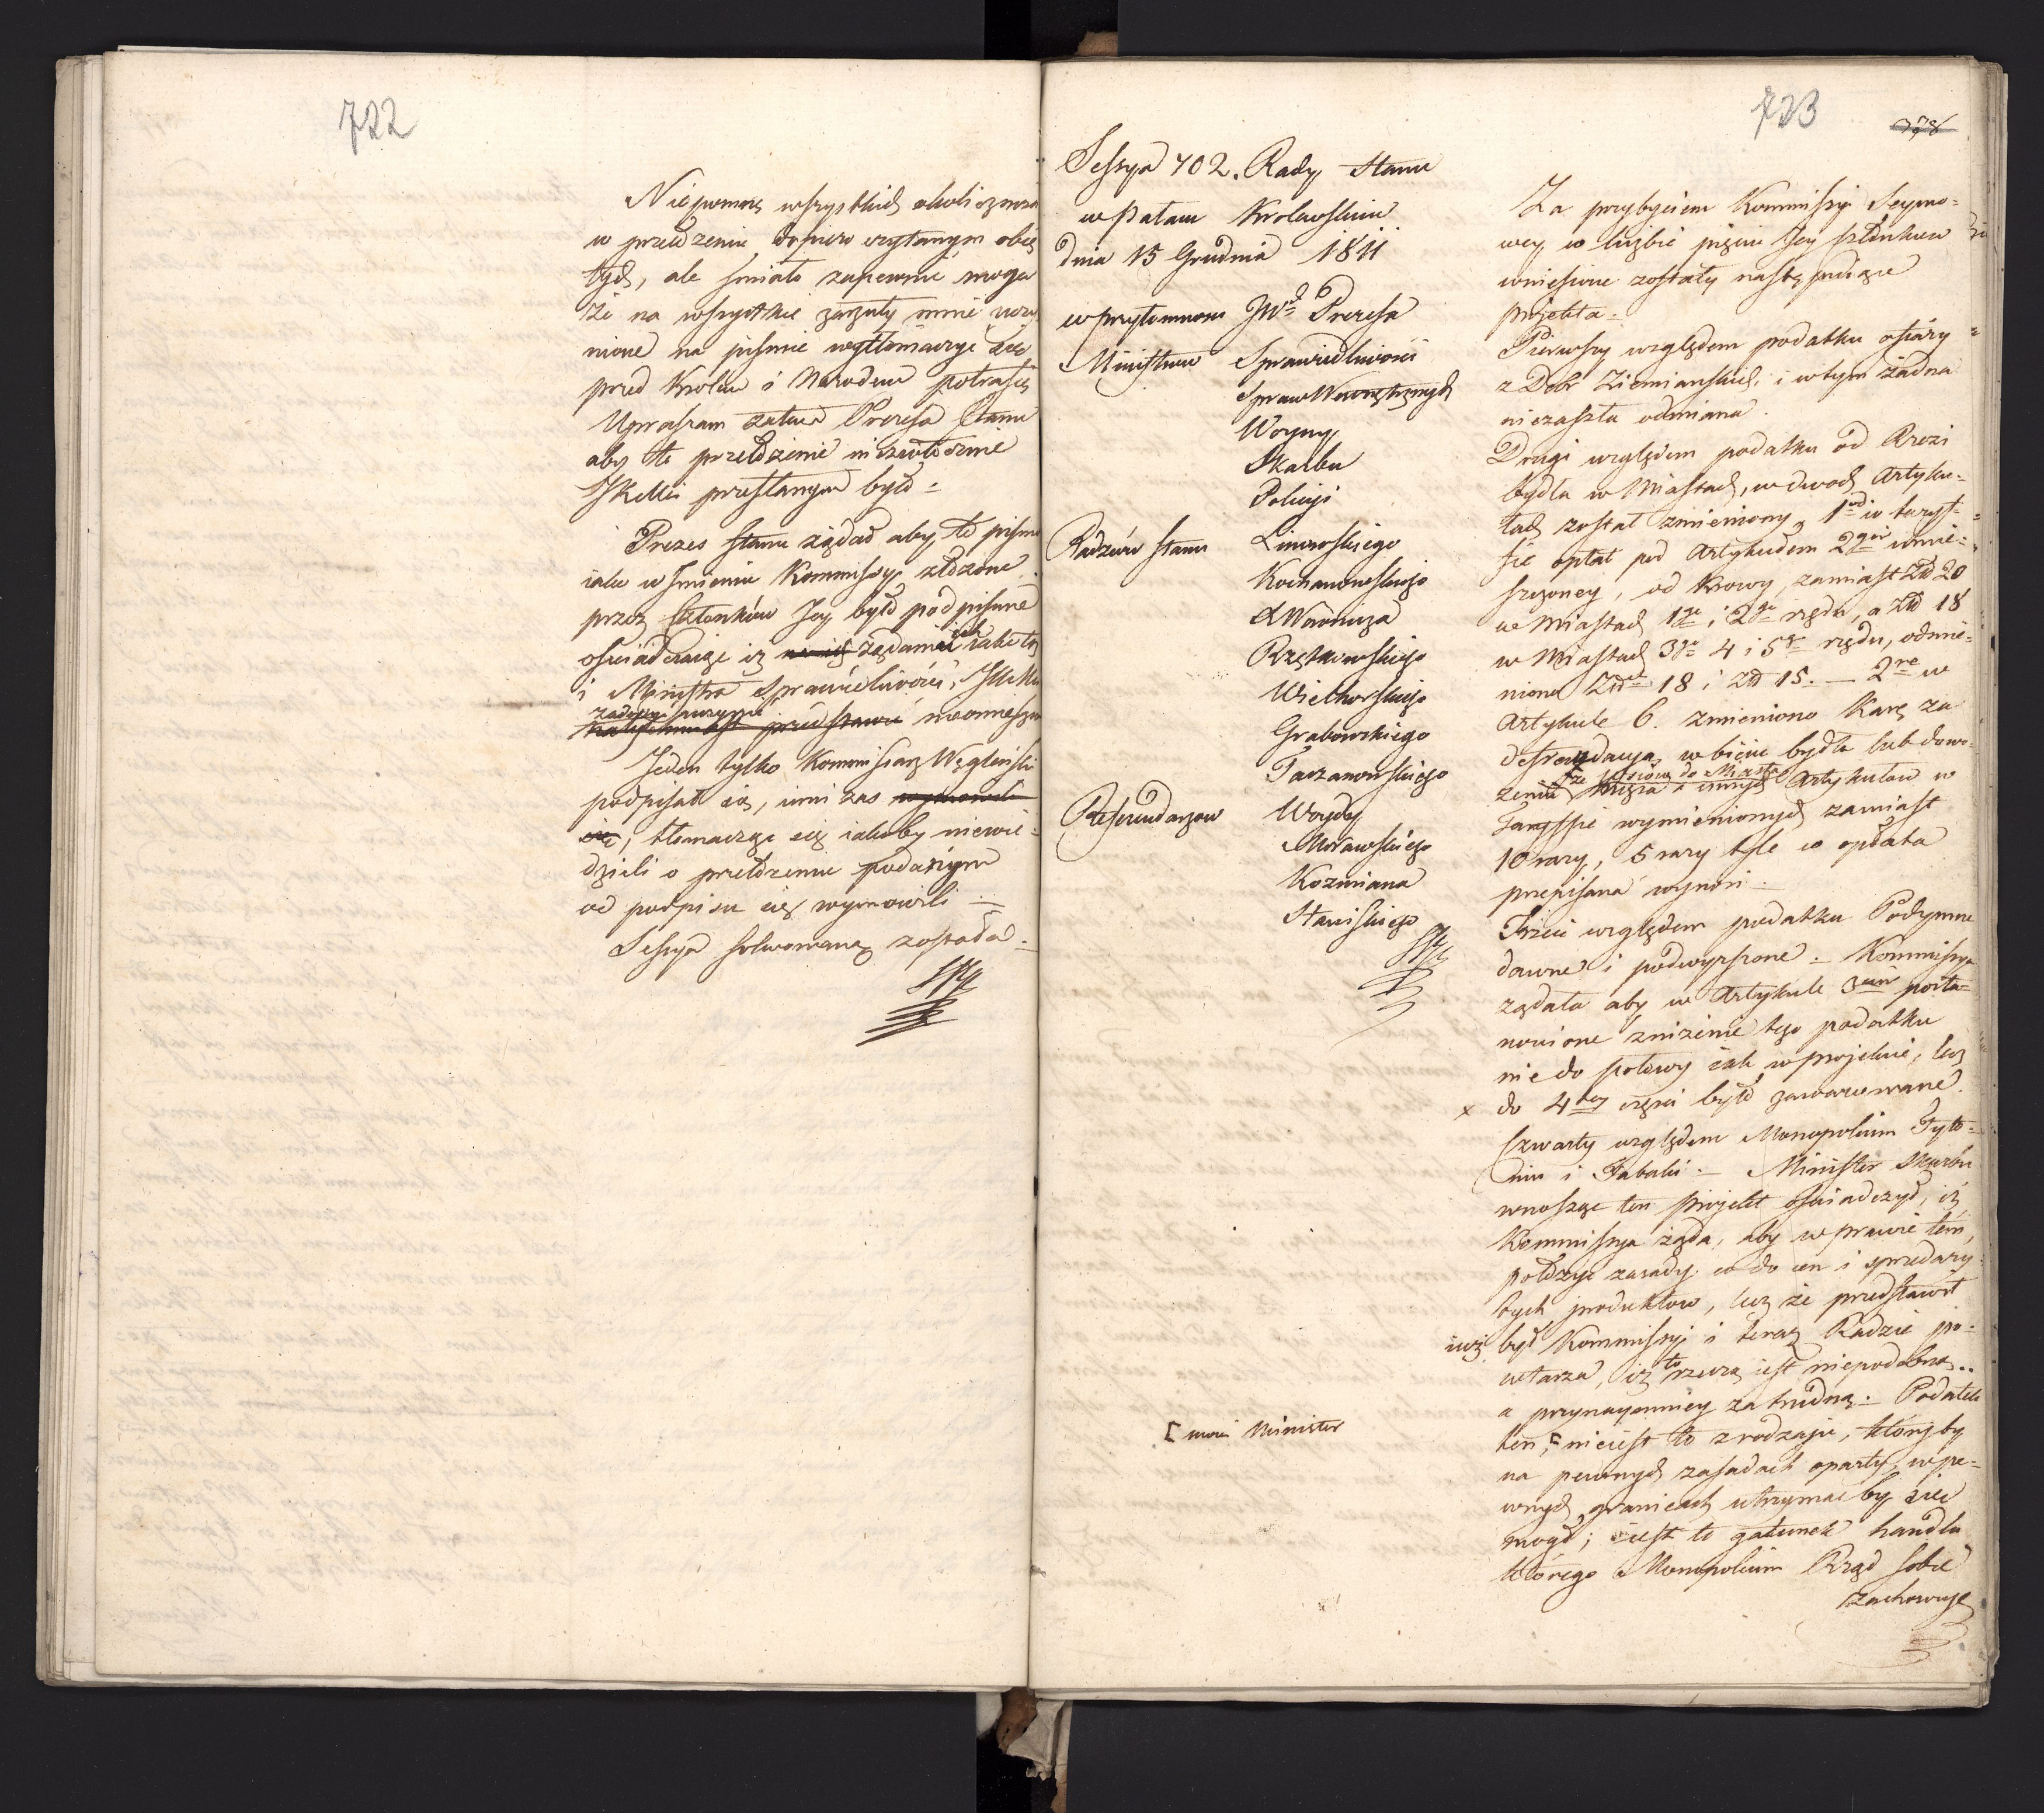 722
Niepomnę wszystkich okoliczno
w przełożeniu dopiero czytanym obię
tych, ale śmiało zapewnić mogę
że na wszystkie zarzuty mnie uczy
nione na piśmie wytłomaczyć się
przed Krolem i Narodem potrafię
Upraszam zatem Prezesa Stanu
aby to przełożenie niezwłocznie
JKMci przesłanym było =
Prezes Stanu żądał aby to pismo
iako w Imieniu Kommissyi złożone
przez Członków Jey było podpisane
oświadczaiąc iż żądanie ich iako też
i Ministra Sprawiedliwości, JKMci
nieomieszka
Jeden tylko Kommissarz Węgleński
podpisał się, inni zas wymowili
się, tłomacząc się iakoby niewie=
dzieli o przełożeniu podanym
od podpisu się wymowili =
Sessya solwowaną została =
723
Sessya 702. Rady Stanu
w Pałacu Krolewskim
dnia 15 Grudnia 1811
w przytomności JW Prezesa
Ministrow Sprawiedliwości
Spraw Wewnętrznych
Woyny
Skarbu
Policyi
Radzców Stanu Linowskiego
Kochanowskiego
Woźnicza
Rzętkowskiego
Wielhorskiego
Grabowskiego
Taczanowskiego
Referendarzow Woydy
Morawskiego
Kozmiana
Staniskiego
Za przybyciem Kommissyi Seymo=
wey w liczbie pięciu Jey Członkow
wniesione zostały następuiące
projekta =
Pierwszy względem podatku ofiary
z Dobr Ziemianskich i w tym żadna
niezaszła odmiana.
Drugi względem podatku od Rzezi
bydła w Miastach, w dwoch Artyku=
łach został zmieniony, 1od w taryf=
fie opłat pod Artykułem 2gim umie=
szczoney, od Krowy, zamiast Złł 20
w Miastach 1go i 2go rzędu, a Złł 18
w Miastach 3go 4 i 5go rzędu, odmie=
niono Złł 18 i Złł 15. — 2re w
Artykule 6. zmieniono Karę za
defraudacyą w biciu bydła lub dowo=
zeniu ze Wsiów do Miasta Mięsa i innych Artykułow w
Taryffie wymienionych zamiast
10 razy, 5 razy tyle co opłata
przepisana wynosi =
Trzeci względem podatku Podymne
dawne i podwyższone = Kommissya
żądała aby w Artykule 3cim posta=
nowione zniżenie tego podatku
nie do połowy iak w projekcie, lecz
x do 4tey części było zawarowane.
Czwarty względem Monopolium Tyto=
niu i Tabaki = Minister Skarbu
wnosząc ten projekt oświadczył, iż
Kommissya żąda, aby w prawie tem
położyć zasady co do cen i sprzedaży
tych produktow, lecz że przedstawił
iuż był Kommissyi i teraz Radzie po=
wtarza, iż to rzeczą iest niepodobną..
a przynaymniey za trudną = Podatek
ten, [ nieiest to z rodzaju, któryby
[ mowi Minister
na pewnych zasadach oparty, w pe=
wnych granicach utrzymać by się
mogł; iest to gatunek handlu
którego Monopolium Rząd sobie
zachowuje